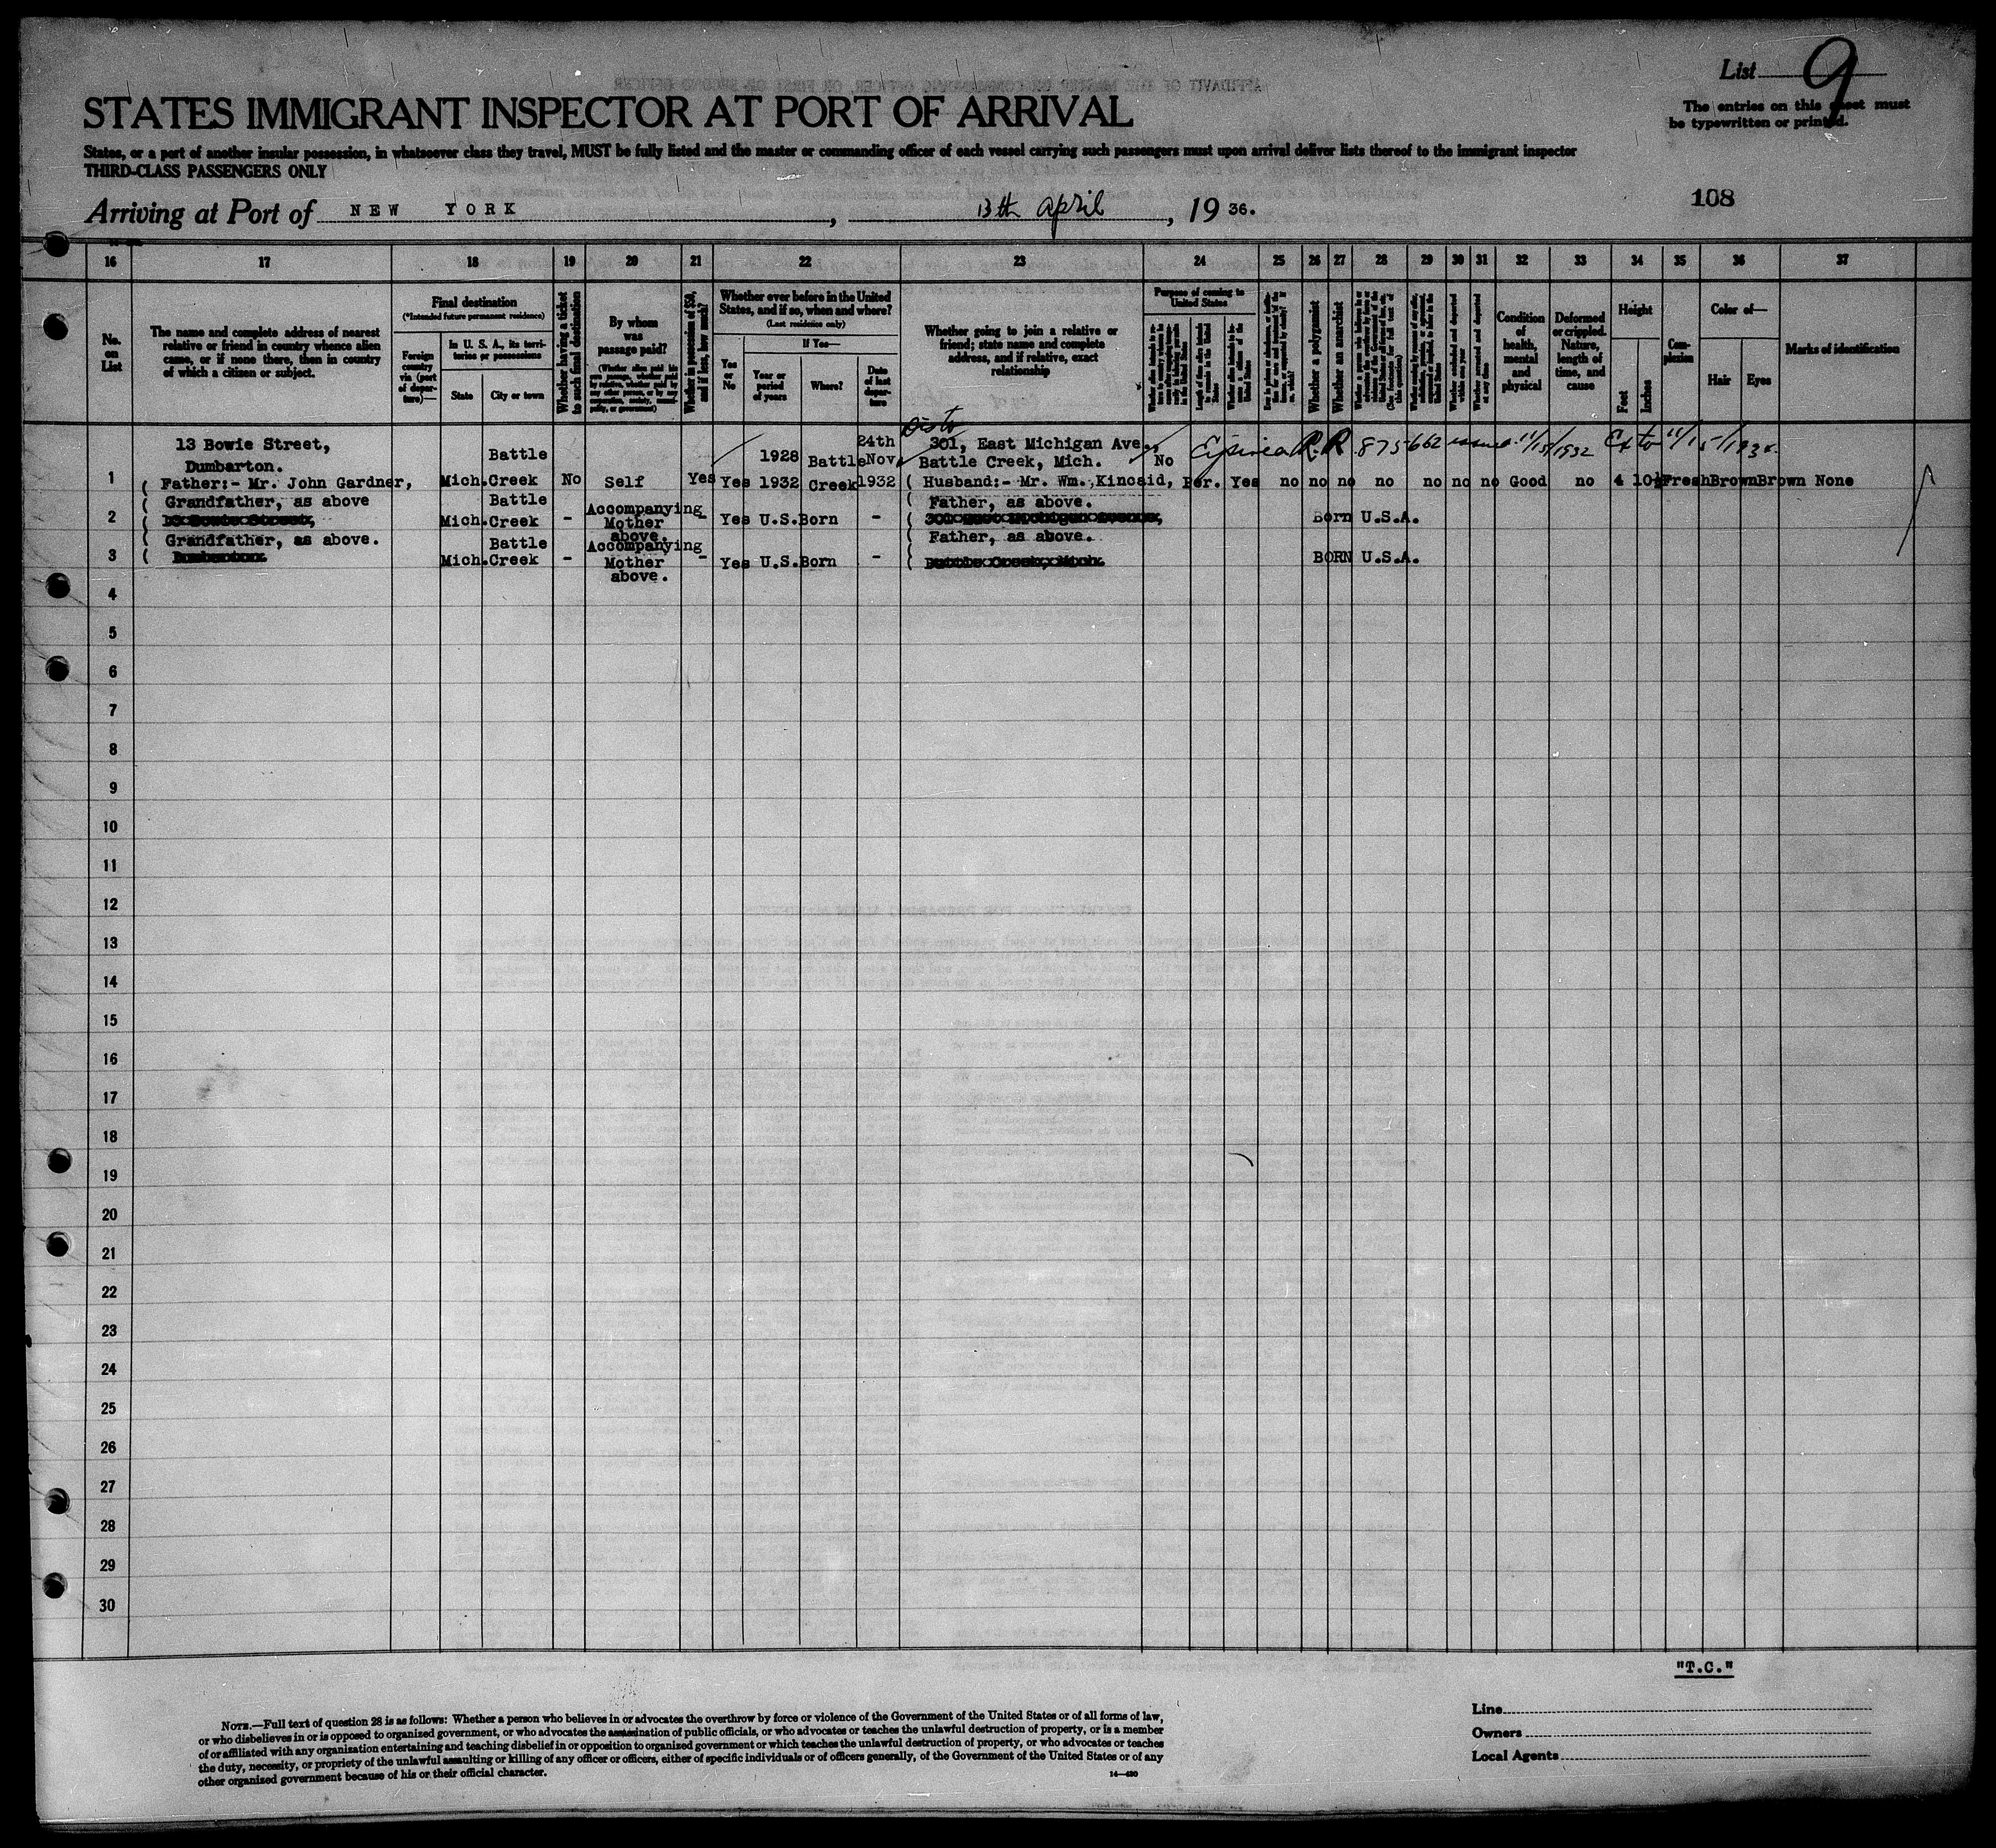 List 9
STATES IMMIGRANT INSPECTOR AT PORT OF ARRIVAL
The entries on this sheet must
be typewritten or printed.
States, or a port of another insular possession, in whatsoever class they travel, MUST be fully listed and the master or commanding officer of each vessel carrying such passengers must upon arrival deliver lists thereof to the immigrant inspector
THIRD-CLASS PASSENGERS ONLY
108
Arriving at Port of NEW YORK, 13th April, 19 36.
16 17 18 19 20 21 22 23 24 25 26 27 28 29 30 31 32 33 34 35 36 37
No. on List
The name and complete address of nearest
relative or friend in country whence alien
came, or if none there, then in country
of which a citizen or subject.
Final destination
(*Intended future permanent residence)
Foreign country via (port of departure)—
In U. S. A., its territories or possessions
State
City or town
Whether having a ticket to such final destination
By whom was passage paid?
Whether in possession of $50, and if less, how much?
Whether ever before in the United
States, and if so, when and where?
(Last residence only)
Yes or No
If Yes—
Year or period of years
Where?
Date of last departure
Whether going to join a relative or
friend; state name and complete
address, and if relative, exact
relationship
Purpose of coming to
United States
Whether a polygamist
Whether an anarchist
Condition of health, mental and physical
Deformed or crippled. Nature, length of time, and cause
Height
Feet
Inches
Complexion
Color of—
Hair
Eyes
Marks of identification
13 Bowie Street,
Dumbarton.
1 ( Father:- Mr. John Gardner, Mich. Battle Creek No Self Yes Yes 1928 1932 Battle Creek 24th Nov. 1932
301, East Michigan Ave.,
Battle Creek, Mich.
( Husband:- Mr. Wm. Kincaid, No Per. Yes no no no no no no no Good no 4 10½ Fresh Brown Brown None
R.R. 875662 issued 11/15/1932 Ext to
2 ( Grandfather, as above Mich. Battle Creek - Accompanying Mother above. - Yes U.S.Born - ( Father, as above. Born U.S.A.
3 ( Grandfather, as above. Mich. Battle Creek - Accompanying Mother above. - Yes U.S.Born - ( Father, as above. BORN U.S.A.
4
5
6
7
8
9
10
11
12
13
14
15
16
17
18
19
20
21
22
23
24
25
26
27
28
29
30
"T.C."
NOTE.—Full text of question 28 is as follows: Whether a person who believes in or advocates the overthrow by force or violence of the Government of the United States or of all forms of law,
or who disbelieves in or is opposed to organized government, or who advocates the assassination of public officials, or who advocates or teaches the unlawful destruction of property, or is a member
of or affiliated with any organization entertaining and teaching disbelief in or opposition to organized government or which teaches the unlawful destruction of property, or who advocates or teaches
the duty, necessity, or propriety of the unlawful assaulting or killing of any officer or officers, either of specific individuals or of officers generally, of the Government of the United States or of any
other organized government because of his or their official character.
14—420
Line
Owners
Local Agents